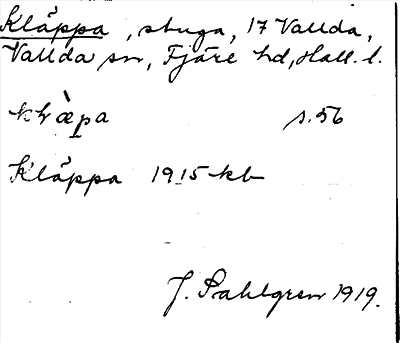 Kläppa, stuga, 17 Vallda,
Vallda sn, Fjäre hd, Hall. l.
s. 56
Kläppa 1915 kb
J. Sahlgren 1919.